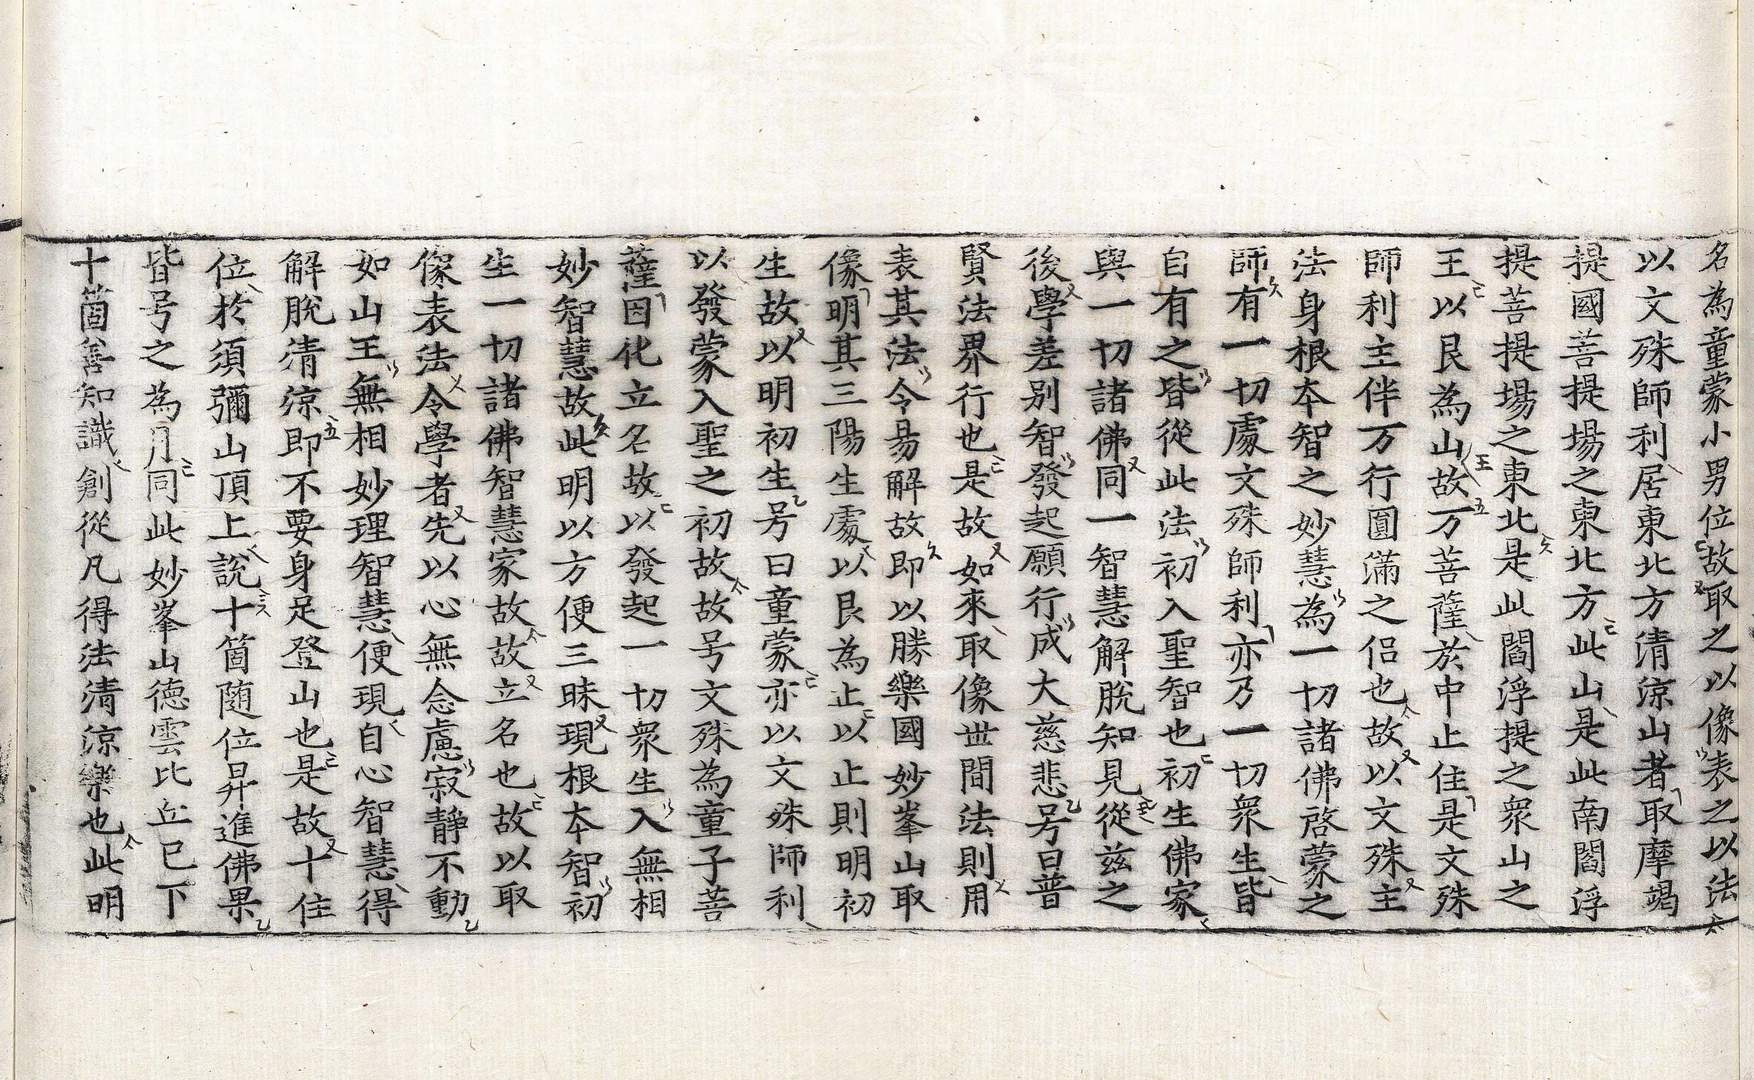 名為童蒙小男位故取之以像表之以法
以文殊師利居東北方清涼山者取摩竭
提國菩提場之東北方此山是此南閻浮
提菩提場之東北是此閻浮提之衆山之
王以艮為山故万菩薩於中止住是文殊
師利主伴万行圓滿之侶也故以文殊主
法身根本智之妙慧為一切諸佛啓蒙之
師有一切處文殊師利亦乃一切衆生皆
自有之皆從此法初入聖智也初生佛家
與一切諸佛同一智慧解脫知見從兹之
後學差別智發起願行成大慈悲号曰普
賢法界行也是故如來取像世間法則用
表其法令易解故即以勝樂國妙峯山取
像明其三陽生處以艮為止以止則明初
生故以明初生号曰童蒙亦以文殊師利
以發蒙入聖之初故故号文殊為童子菩
薩因化立名故以發起一切衆生入無相
妙智慧故此明以方便三昧現根本智初
生一切諸佛智慧家故故立名也故以取
像表法令學者先以心無念慮寂靜不動
如山王無相妙理智慧便現自心智慧得
解脫清涼即不要身足登山也是故十住
位於須彌山頂上說十箇随位昇進佛果
皆号之為月同此妙峯山德雲比丘已下
十箇善知識創從凡得法清涼樂也此明